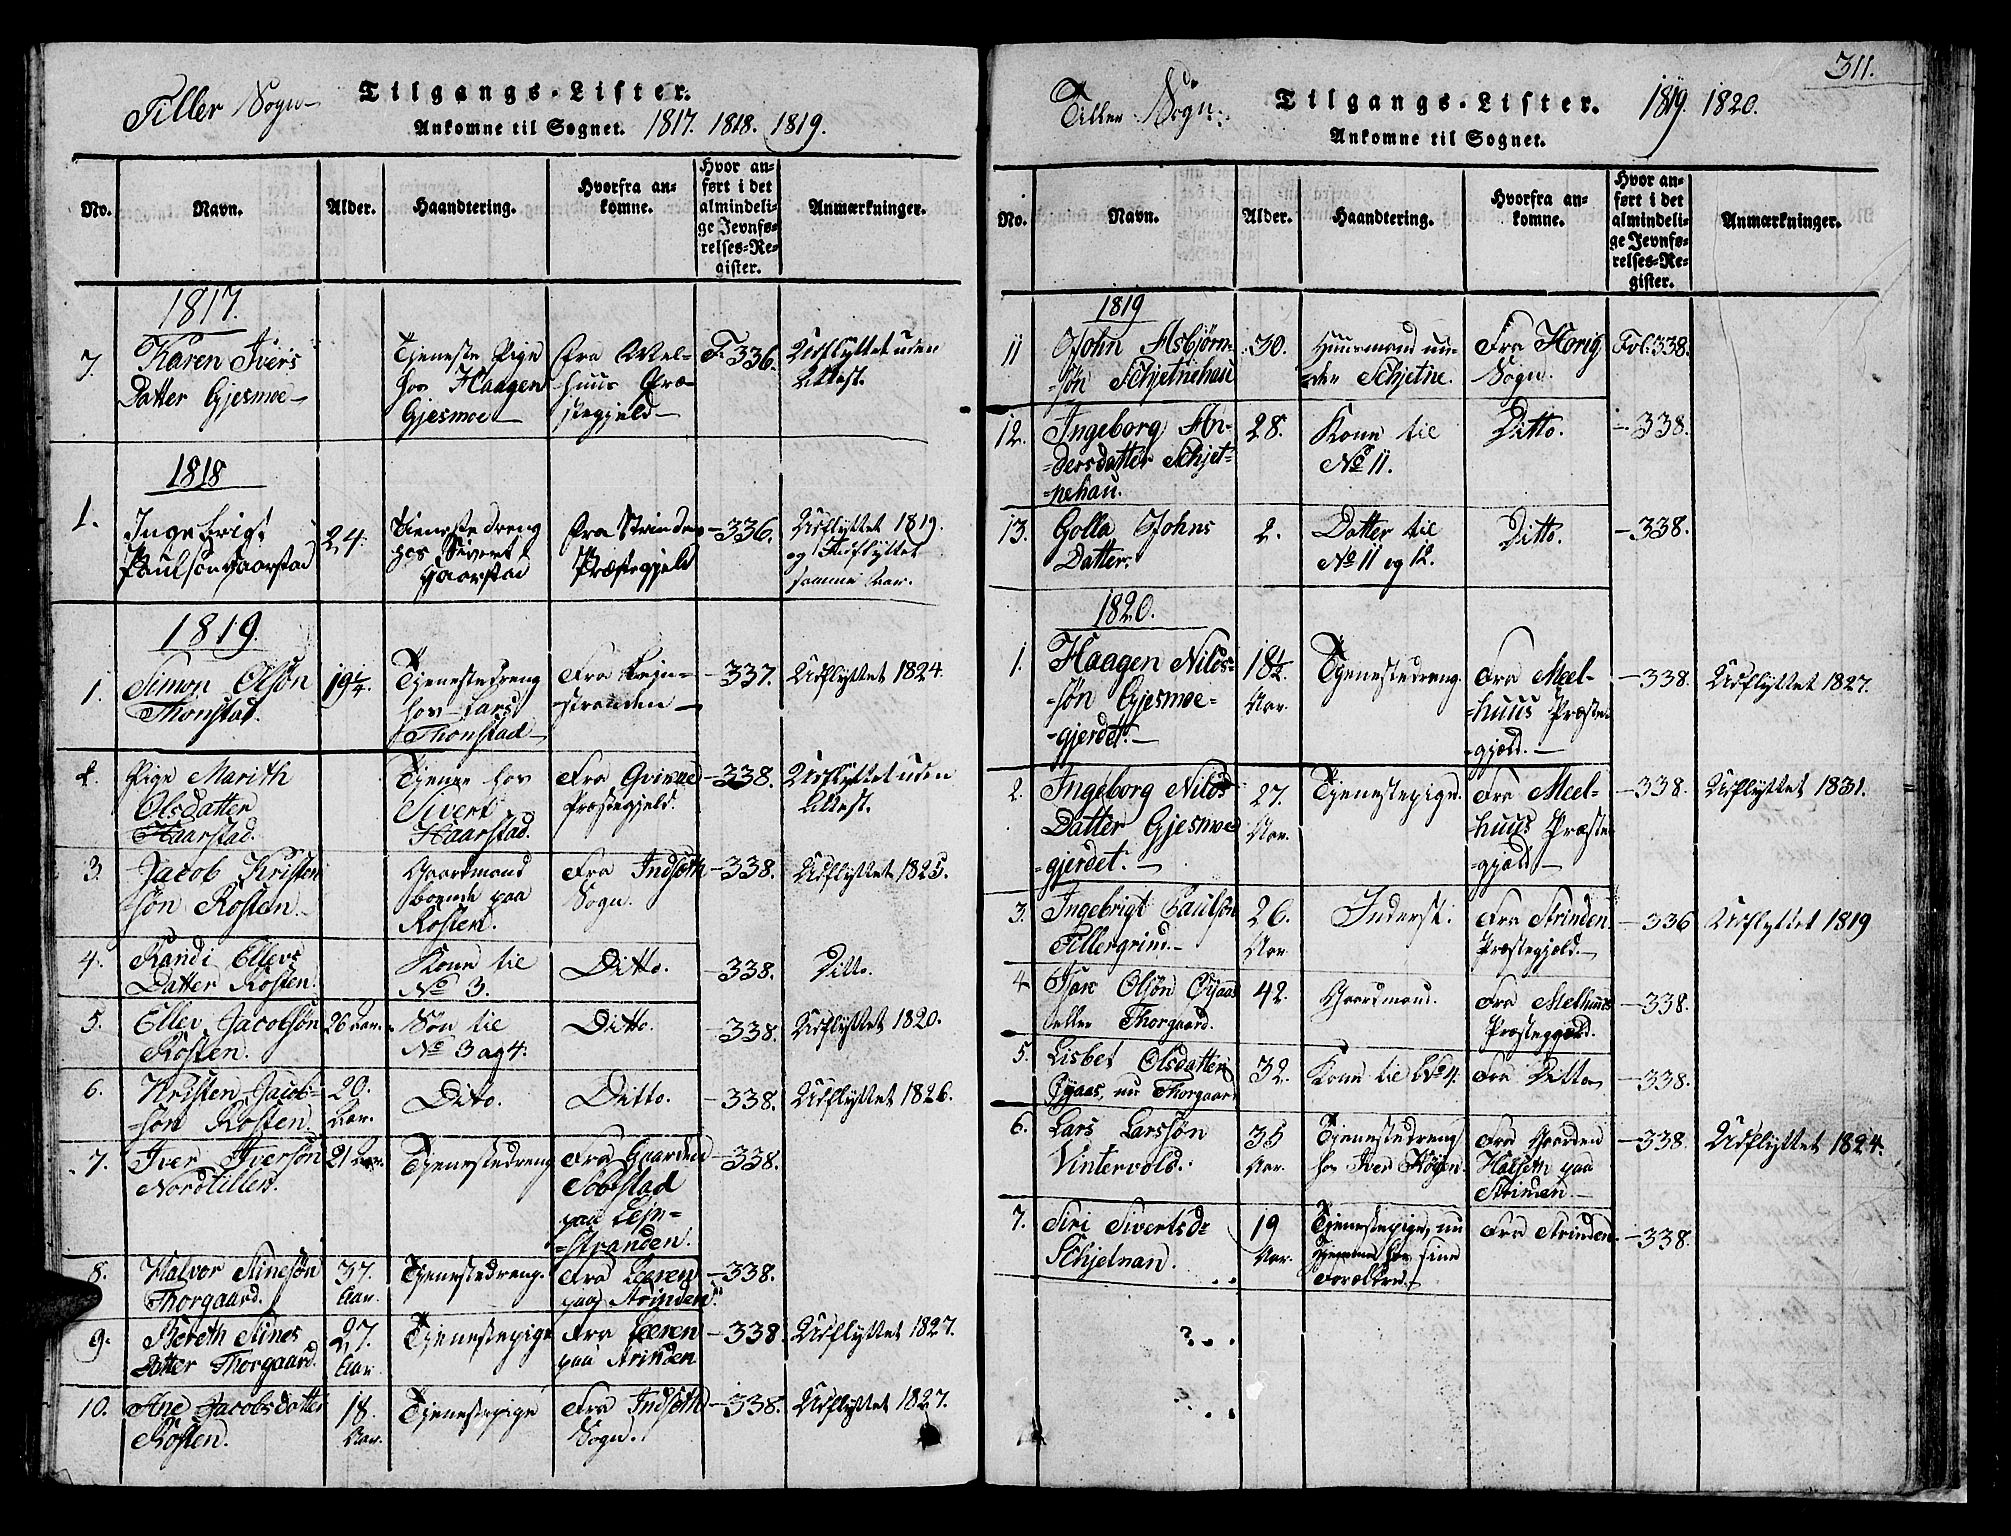 Tiller Sogn
Tilgangs-Lister.
Ankomne til Sognet. 1817. 1818. 1819.
No.
Navn.
Alder.
Haandtering.
Hvorfra an-
komne.
Hvor an-
ført i det
almindeli-
ge Jevnfø-
relses-Re-
gister.
Anmærkninger.
1817.
7.
Karen Ivers
Datter Gjesmoe
Tjeneste Pige
hos Haagen
Gjesmoe
fra Mel-
huus Præ-
stegjeld
F. 336.
Udflyttet uden
Attest.
1818
1.
Ingebrigt
Paulson Haarstad
24.
Tieneste dreng
hos Sivert
Haarstad
fra Strinden
Præstegjeld
-336.
Udflyttet 1819.
og Indflyttet
samme Aar.
1819.
1.
Simon Olsøn
Thonstad.
19 1/4.
Tjenestedreng
hos Lars
Thonstad
Fra Lejn-
stranden
-337.
Udflyttet 1824.
2.
Pige Marith
Olsdatter
Haarstad.
Tjener hos
Sivert
Haarstad.
Fra
Præstegjeld.
-338.
Udflyttet uden
Attest.
3.
Jacob Kristen
søn Rosten.
Gaardmand
boende paa
Rosten.
Fra Indseth
Sogn.
-338.
Udflyttet 1825.
4.
Randi Ellevs
Datter Rosten.
Kone til
No 3.
Ditto.
-338.
Ditto.
5.
Ellev Jacobsøn
Rosten.
26 Aar.
Søn til
No 3 og 4.
Ditto.
-338.
Udflyttet 1820.
6.
Kristen Jacob-
søn Rosten.
20.
Aar.
Dito.
Ditto.
-338.
Udflyttet 1826.
7.
Iver Iversøn
Nordtiller.
21 Aar.
Tjenestedreng
Fra Gaarden
Sobstad
paa Lejn-
stranden.
-338.
8.
Halvor Stinesøn
Thorgaard.
37.
Aar.
Tjenestedreng.
Fra Leeren
paa Strinden.
-338.
9.
Bereth Stines
Datter Thorgaard.
27.
Aar.
Tjenestepige
Fra Leeren
paa Strinden
-338
Udflyttet 1827.
10.
Ane Jacobsdatter
Rosten.
18.
Aar.
Tjenestepige
Fra Indseth
Sogn.
-338.
Udflyttet 1827.
311.
Tiller Sogn.
Tilgangs-Lister. 1819. 1820.
Ankomne til Sognet.
No.
Navn.
Alder.
Haandtering.
Hvorfra an-
komne.
Hvor an-
ført i det
almindeli-
ge Jevnfø-
relses-Re-
gister.
Anmærkninger.
1819
11
John Asbjörn-
-søn Schjetnehau
30.
Huusmand un-
der Schjetne.
Fra Horig
Sogn.
Fol. 338.
12.
Ingeborg An-
-dersdatter Schjet-
-nehau.
28.
Kone til
No 11.
Ditto.
-338.
13.
Golla Johns
Datter.
2.
Datter til
No 11 og 12.
Ditto.
-338.
1820.
1.
Haagen Nils-
-søn Gjesmoe-
-gjerdet.
18 1/2.
Aar.
Tjenestedreng.
Fra Meel-
-huus Præste-
-gjeld.
-338.
Udflyttet 1827.
2.
Ingeborg Nils
Datter Gjesmoe
-gjerdet.
27.
Aar.
Tjenestepige.
Fra Meel-
huus Præste
-gjeld.
-338.
Udflyttet 1831.
3.
Ingebrigt Paulsøn
Tillergrind.
26.
Aar.
Inderst.
Fra Strinden
Præstegjeld.
-336
Udflyttet 1819
4.
Isac Olsøn Øyaas
eller Thorgaard.
42.
Gaardmand.
Fra Melhuus
Præstegjeld.
-338.
5.
Lisbet Olsdatter
Øyaas, nu Thorgaard
32.
Kone til No 4.
Fra Ditto
-338.
6.
Lars Larssøn
Vintervold.
35
Aar.
Tjenestedreng
hos Iver
Fra Gaarden
Halseth paa
Strinden.
-338.
Udflyttet 1824.
7.
Siri Sivertsd-
Schjelnan.
19
Aar.
Tjenestepige, nu
hjemme hos sine
Forældre.
Fra Strinden.
-338.